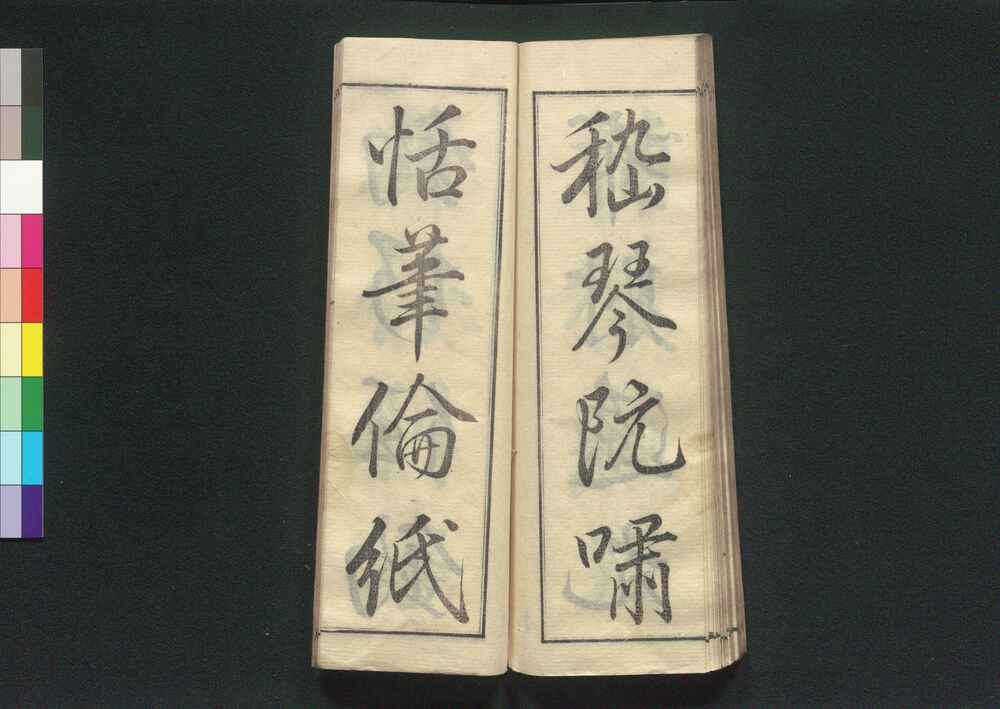 嵇琴阮嘯
恬筆倫紙